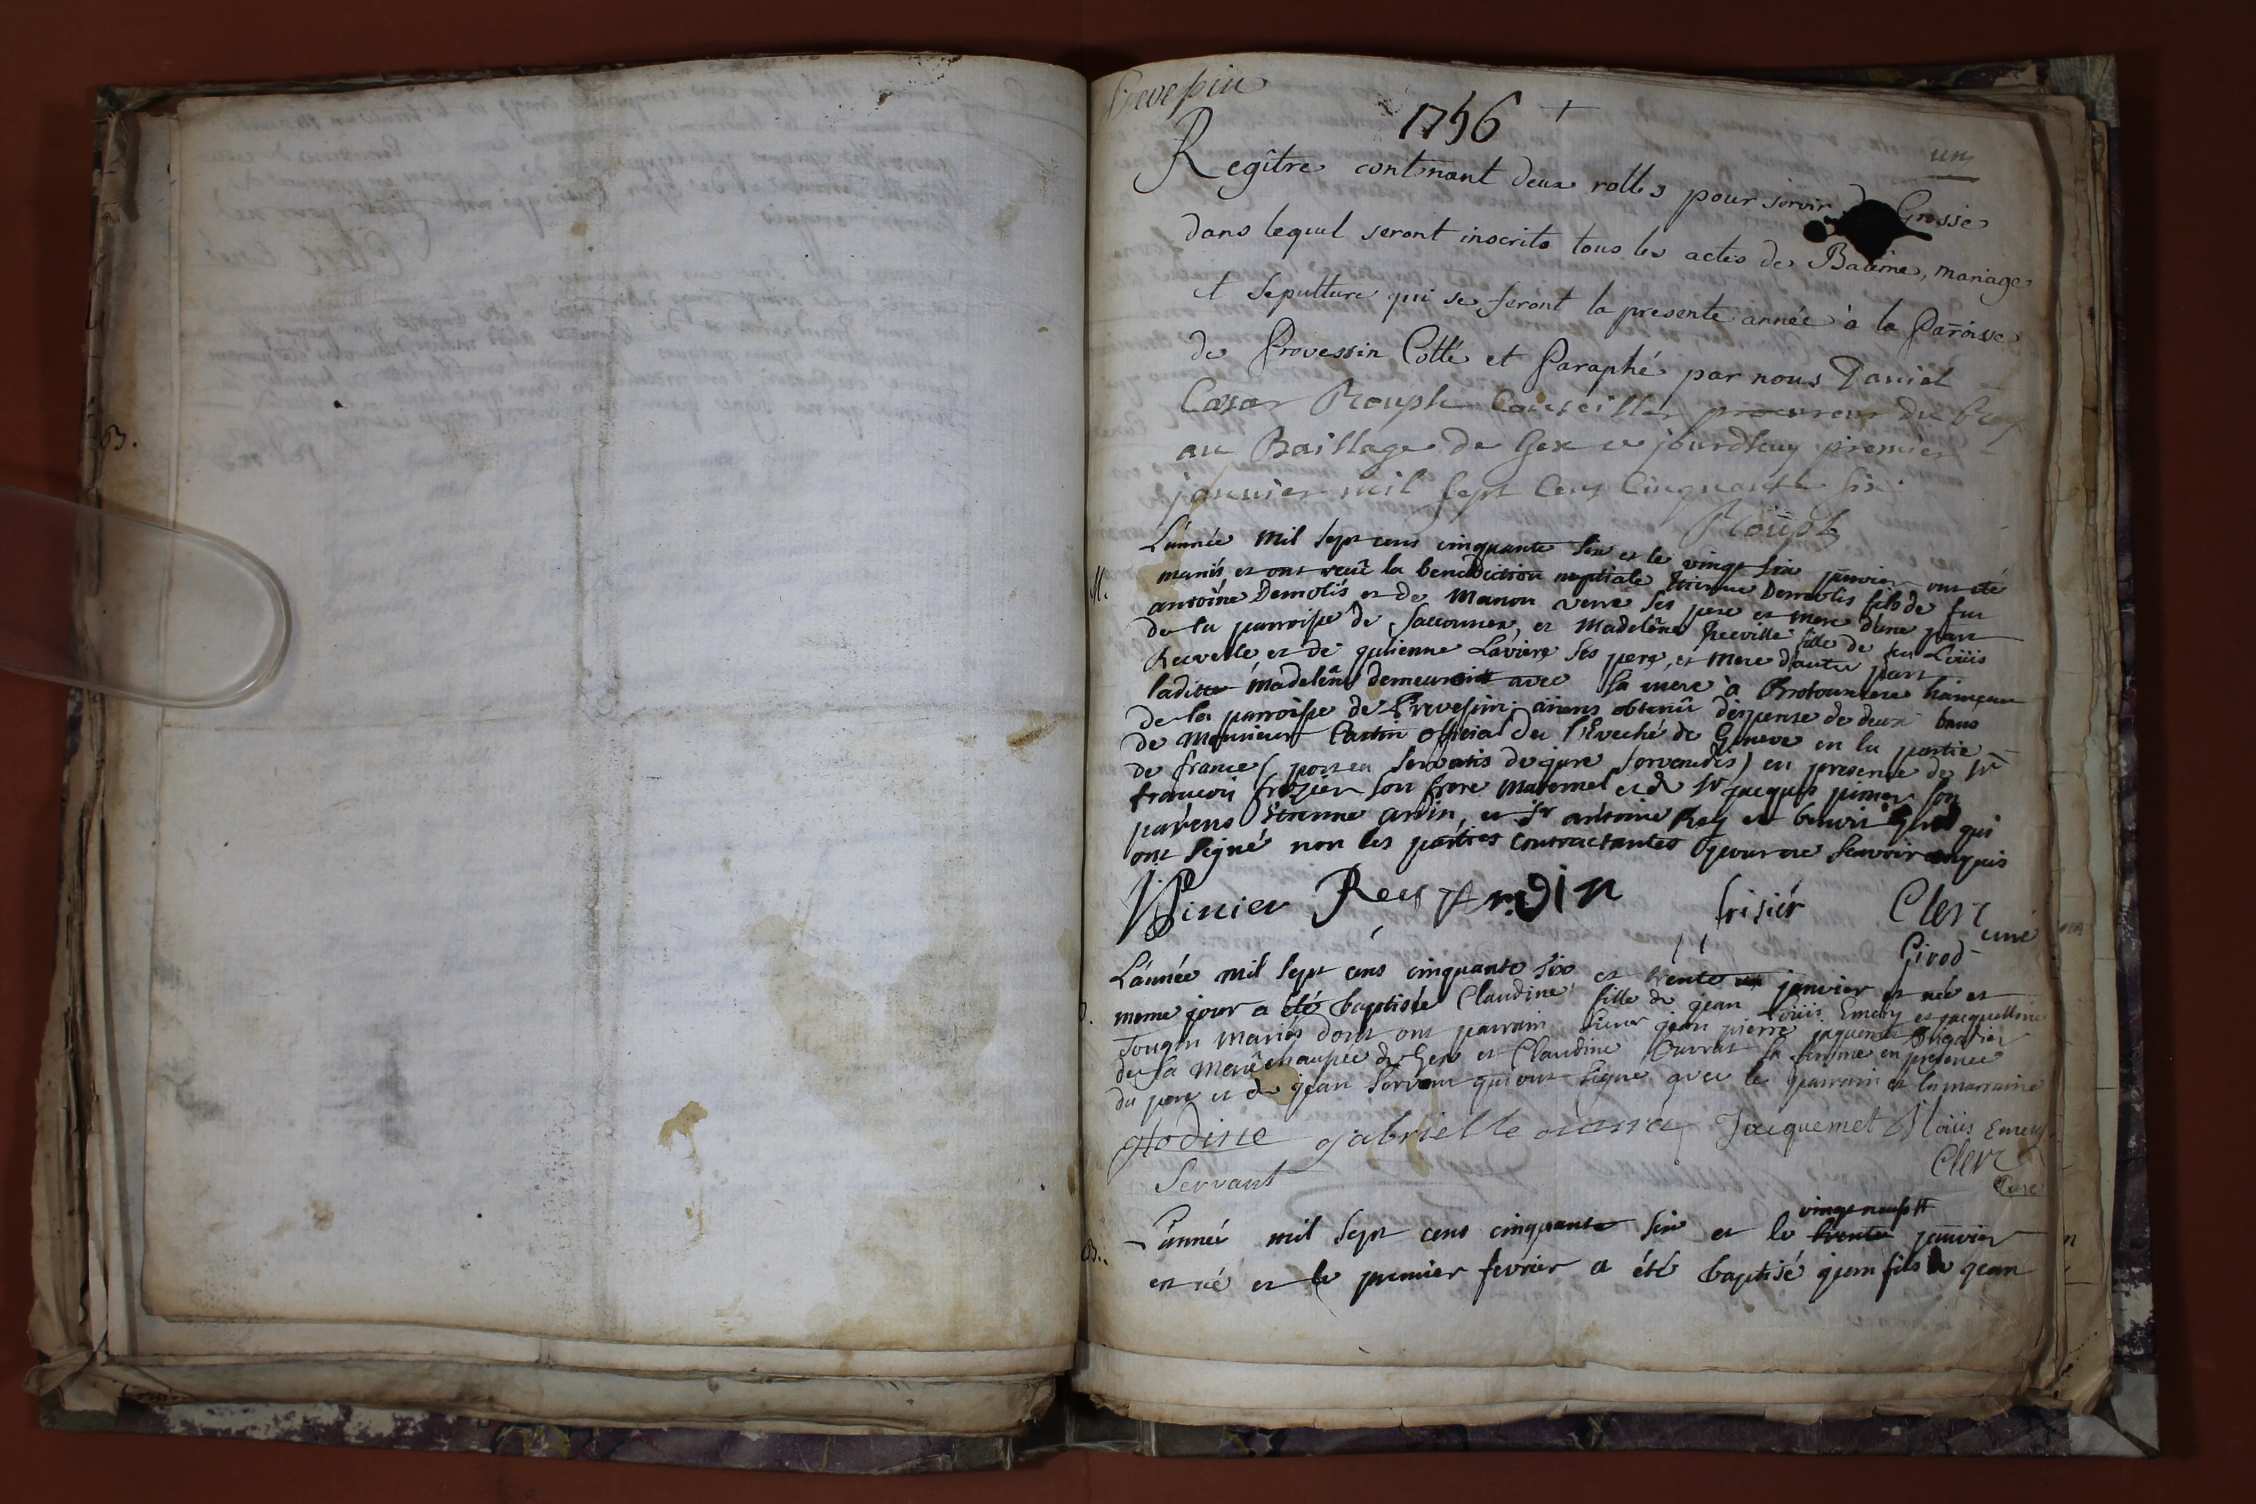 Prevessin
1756 +
un
Regître contenant deux rolles pour servir de Grosse
dans lequel seront inscrits tous les actes de Batême, mariage
et sepulture qui se feront la presente année à la Paroisse
de Prevessin Cotté et Paraphé par nous Daniel
Cesar Rouph Conseiller procureur du Roy
au Baillage de Gex ce jourdhuy premier
janvier mil sept cens cinquante six.
Roüph
L'année mil sept cens cinquante six et le vingt six janvier ont été
M. mariés et ont recüe la benediction nuptiale Etienne Demolis fils de feu
antoine Demolis et de Manon verre ses pere et mere d'une part
de la parroisse de Sacconnex, et Madelêne fille de feu Loüis
et de Lavivre ses pere, et mere d'autre part
laditte Madelêne demeurant avec sa mere à hameau
de la parroisse de Prevessin. aiens obtenû dispense de deux bans
de Monsieur Castin official de l'Eveché de Geneve en la partie
de france ( servatis de jure servendis) en presence de sr
françois frizier son frere maternel et de sr jacques pinier son
parens Etienne ardin, et sr antoine Rey et benoit girod qui
ont signé non les parties contractantes pour ne sçavoir enquis
Pinier Rey Ardin frisiér Clerc curé
Girod
L'année mil sept cens cinquante six et trente un janvier est née et
meme jour a été baptisée Claudine fille de jean loüis Emery et jacquelline
Tougin mariés dont ont parrain sieur jean pierre jaquemet brigadier
de la Marêchaussée de Gex et Claudine Ouvrat sa femme en presence
du pere et de jean servant qui ont signé avec le parrain et la marraine
glodine gabrielle Jacquemet loüis Emery
Servant Clerc
Curé
vingt neuf
L'année mil sept cens cinquante six et le trente janvier
B. est né et le premier fevrier a été baptisé jean fils de jean
B.